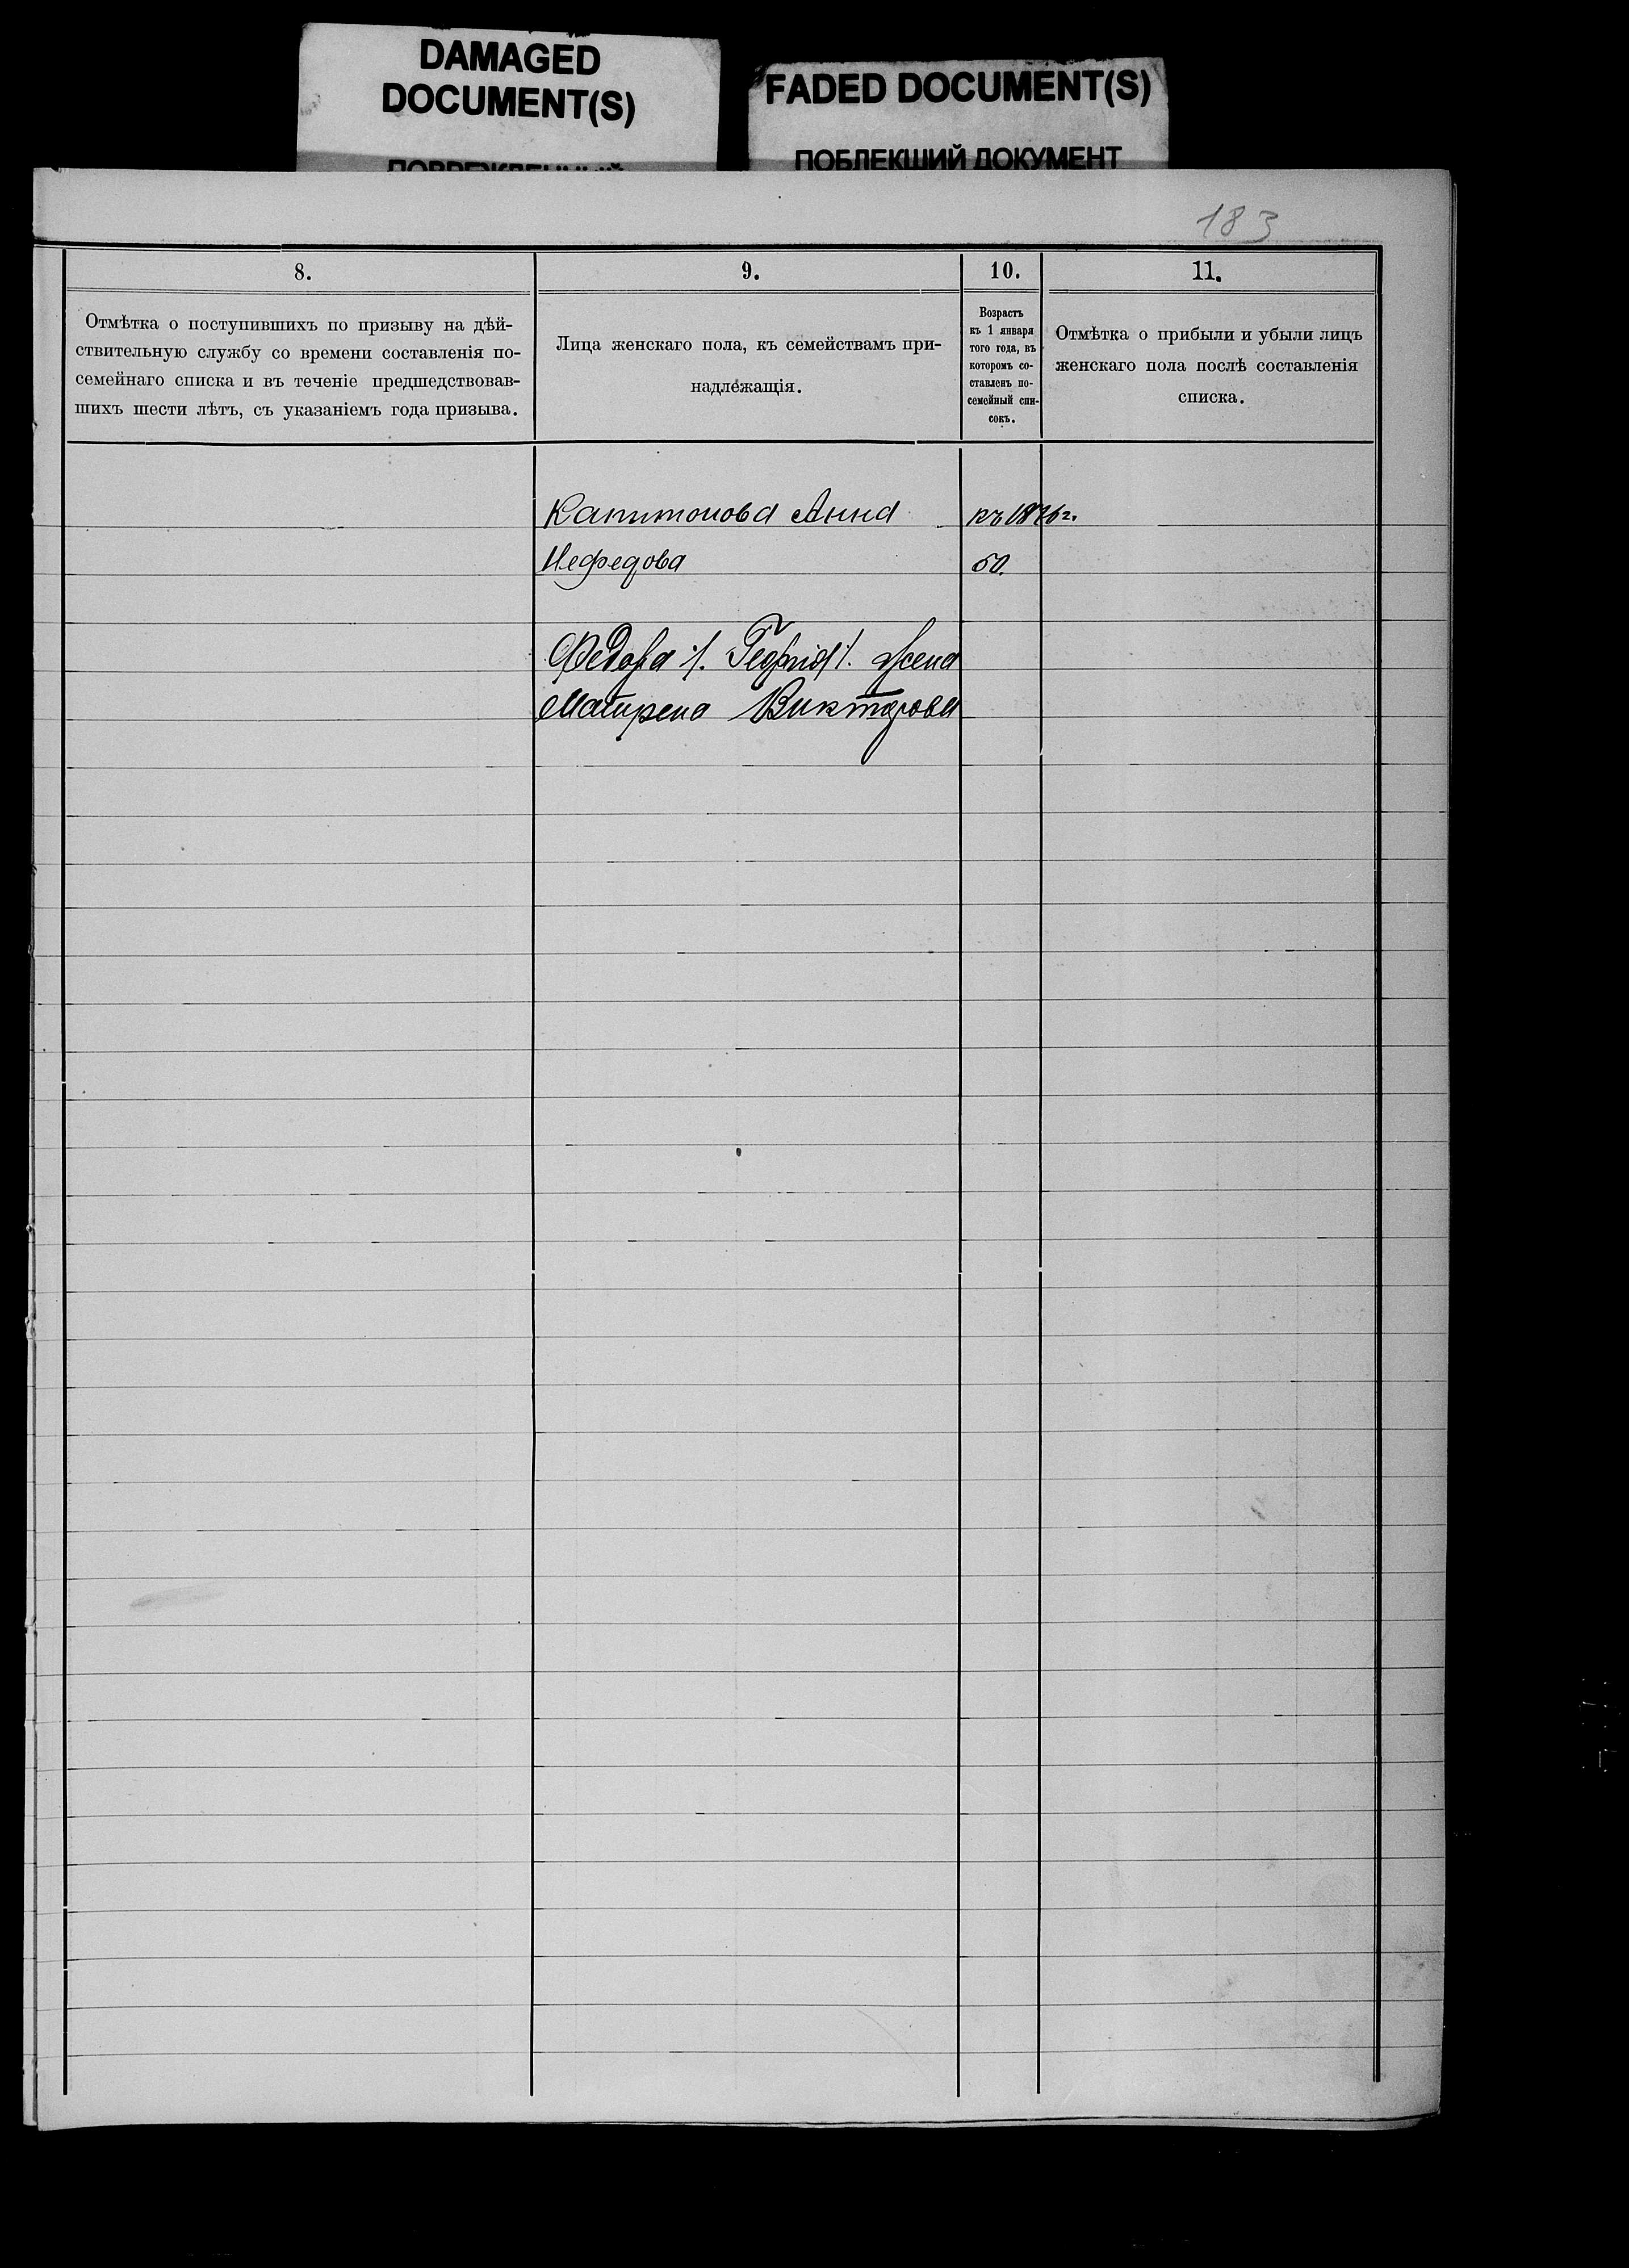 DAMAGED
DOCUMENT(S)
FADED DOCUMENT(S)
ПОВРЕЖДЕННЫЙ
ПОБЛЕКШИЙ ДОКУМЕНТ
183
8.
Отмѣтка о поступившихъ по призыву на дѣй-
ствительную службу со времени составленія по-
семейнаго списка и въ теченіе предшедствовав-
шихъ шести лѣтъ, съ указаніемъ года призыва.
9.
Лица женскаго пола, къ семействамъ при-
надлежащія.
10.
Возрастъ
къ 1 января
того года, въ
которомъ со-
ставленъ по-
семейный спи-
сокъ.
11.
Отмѣтка о прибыли и убыли лицъ
женскаго пола послѣ составленія
списка.
Капитонова Анна
къ 1876 г.
Нефедова
50.
Федора /. Георгія /. жена
Матрена Викторова